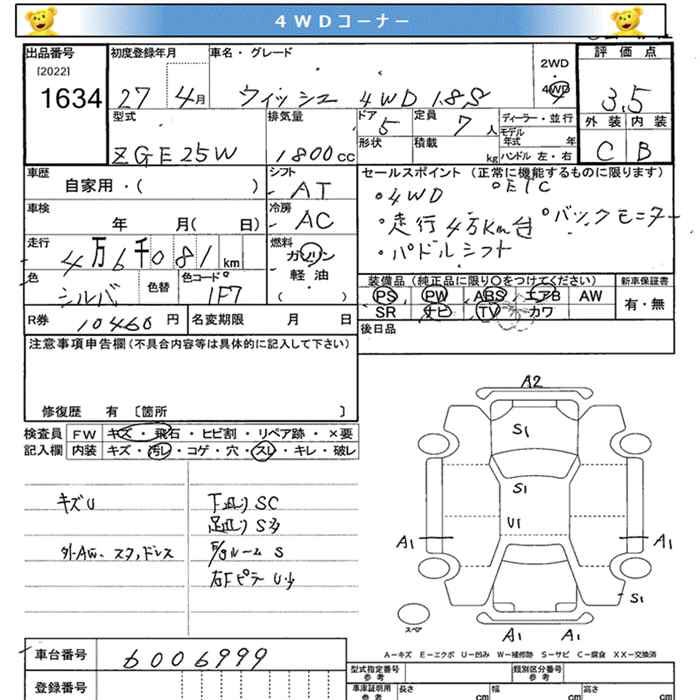 4WDコーナー
出品番号
[2022]
1634
初度登録年月
27 4月
車名・グレード
ウィッシュ 4WD 1.8S
2WD
4WD
4
評価点
3.5
外装 内装
C B
型式
ZGE25W
排気量
1800cc
ドア 5
形状
定員 7人
積載 kg
ディーラー・並行
モデル年式 年
ハンドル 左・右
車歴
自家用・( )
車検
年 月( 日)
走行
4万6千081km
色
シルバ
色替
色コード
1F7
シフト
AT
冷房
AC
燃料
ガソリン
軽・油
( )
セールスポイント (正常に機能するものに限ります)
・4WD ・ETC
・走行4万km台 ・バックモニター
・パドルシフト
装備品 (純正品に限り〇をつけてください)
PS PW ABS エアB AW
SR ナビ TV カワ
新車保証書
有・無
後日品
R券 10460円
名変期限 月 日
注意事項申告欄(不具合内容等は具体的に記入して下さい)
修復歴 有 〔箇所 〕
検査員記入欄
FW キズ・飛石・ヒビ割・リペア跡・×要
内装 キズ・汚レ・コゲ・穴・スレ・キレ・破レ
キズU
外AW、スタッドレス
下廻りSC
足廻りS多
E/gルームS
右FピラーU少
A2
S1
S1
U1
A1
A1
S1
A1 A1
スペア
A-キズ E-エクボ U-凹み W-補修跡 S-サビ C-腐食 XX-交換済
車台番号 6006999
登録番号
型式指定番号 参考
類別区分番号 参考
車庫証明用 参考
長さ cm
幅 cm
高さ cm